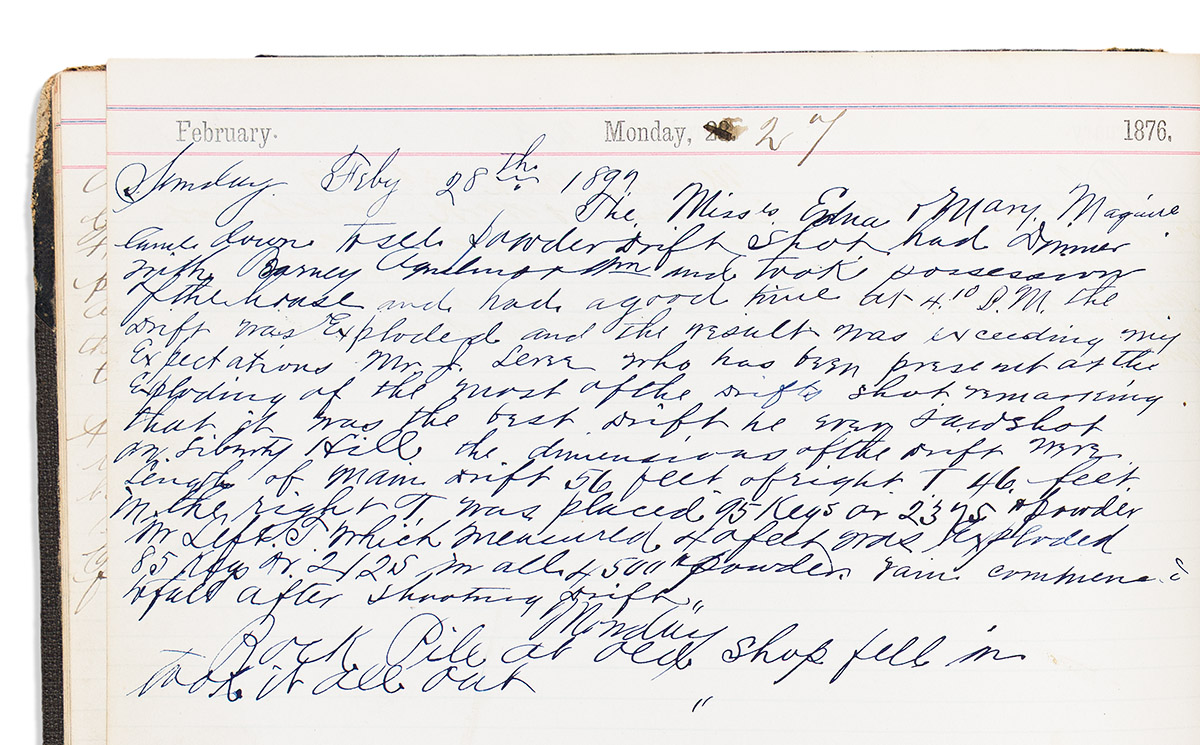 February. Monday, 28. 27 1876.
Sunday Feby 28th 1897
The Misses Edna & Mary Maguire
came down to see powder Drift shot had Dinner
with Barney and took possession
of the house and had a good time at 4.10 P.M. the
Drift was Exploded and the result was exceeding my
Expectations Mr. J. who has been present at the
Exploding of the most of the Drifts shot remarking
that it was the best Drift he ever saw shot
on Liberty Hill the dimensions of the Drift were
Length of main Drift 56 feet of right T 46 feet
in the right T was placed 95 Kegs or 2375 # powder
in Left T which measured 40 feet was Exploded
85 Kegs or 2125 in all 4500 # powder. rain commenc
to fall after shooting Drift "
Monday
Rock Pile at old shop fell in
took it all out
"